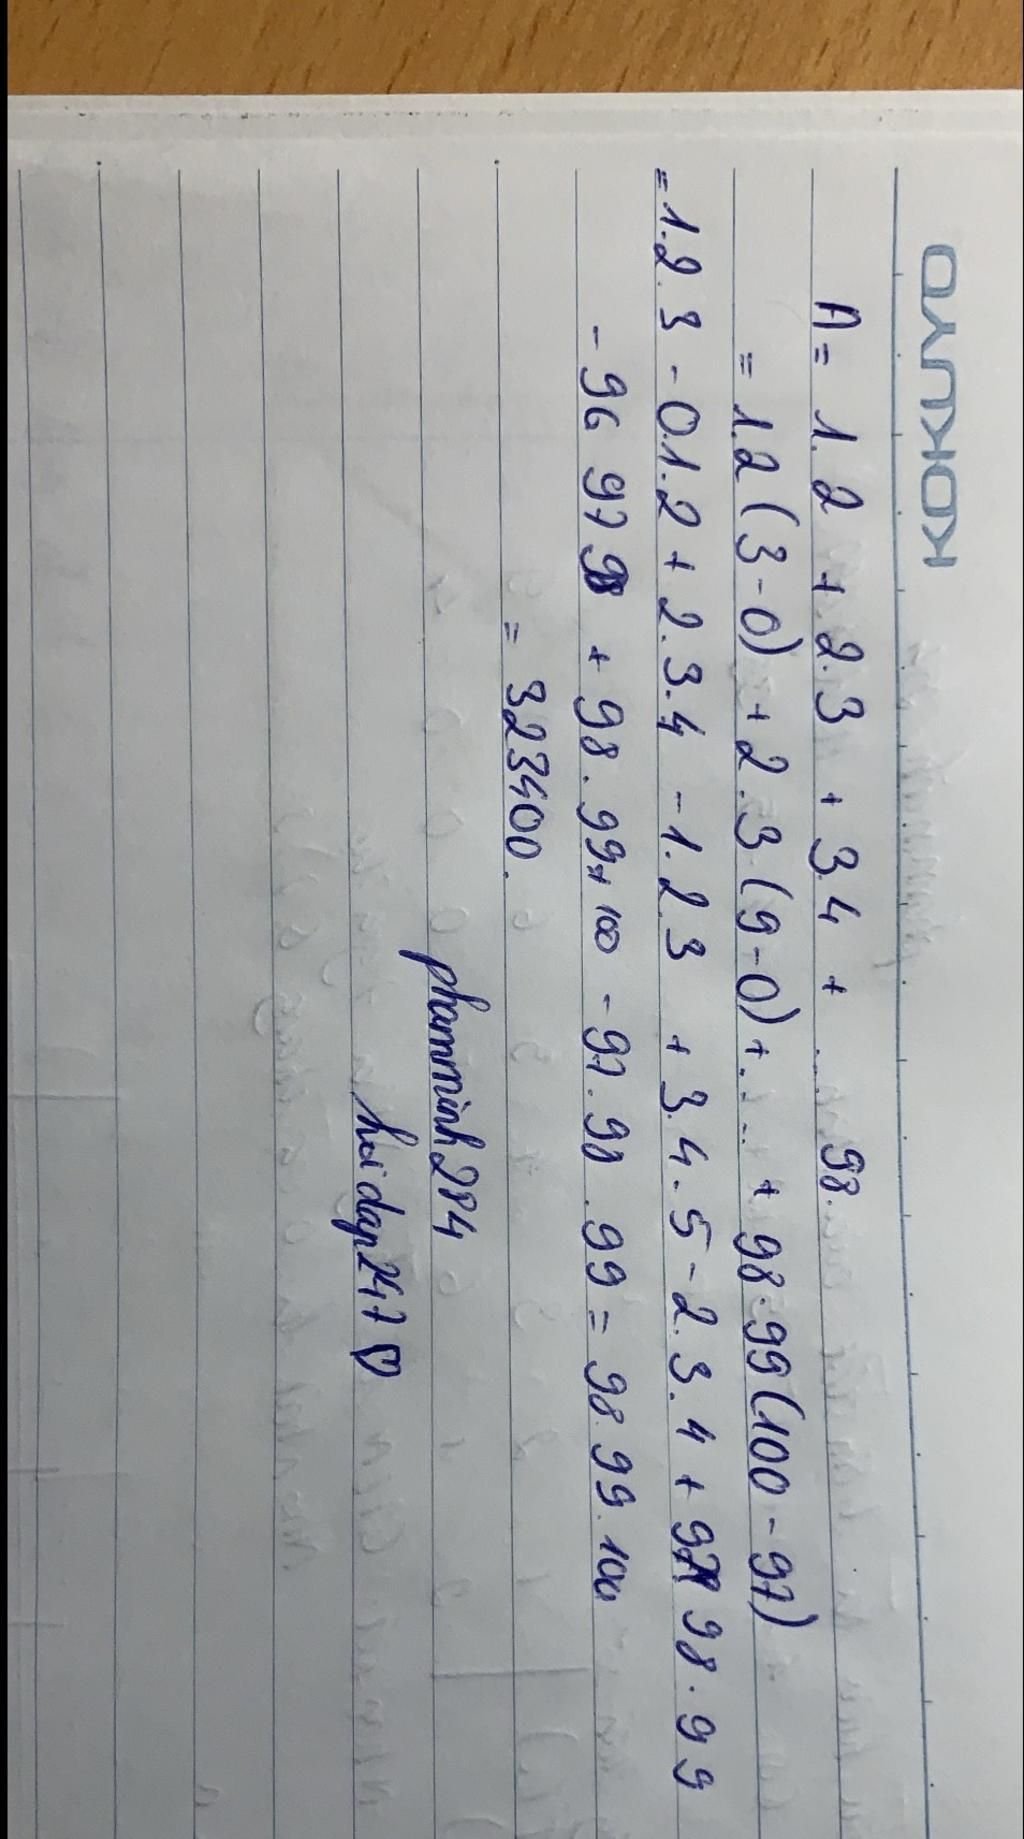 KOKUYO
A = 1.2 + 2.3 + 3.4 + ..... 98.
= 1.2 (3-0) + 2.3 (9-0) + .... + 98.99 (100-97)
= 1.2.3 - 0.1.2 + 2.3.4 - 1.2.3 + 3.4.5 - 2.3.4 + 97 98.99
- 96 97 98 + 98.99.100 - 97.98.99 = 98.99.100
= 323400.
phamminh284
hoidap247 ♡